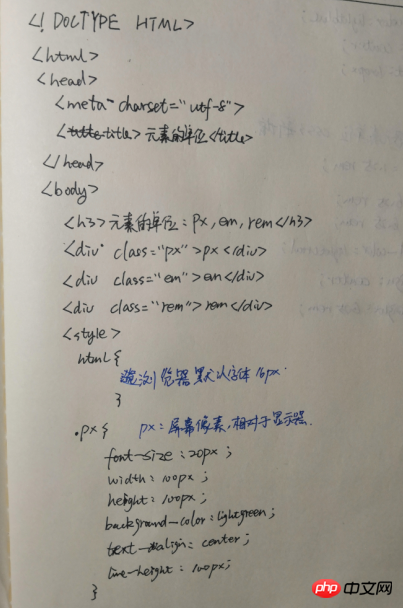 <! DOCTYPE HTML>
<html>
<head>
<meta charset="utf-8">
<title>元素的单位<title>
</head>
<body>
<h3>元素的单位:px, em, rem</h3>
<div class="px">px</div>
<div class="em">em</div>
<div class="rem">rem</div>
<style>
html{
浏览器默认字体16px.
}
.px{ px:屏幕像素,相对于显示器.
font-size:20px;
width:100px;
height:100px;
background-color:lightgreen;
text-align:center;
line-height:100px;
}
php 中文网